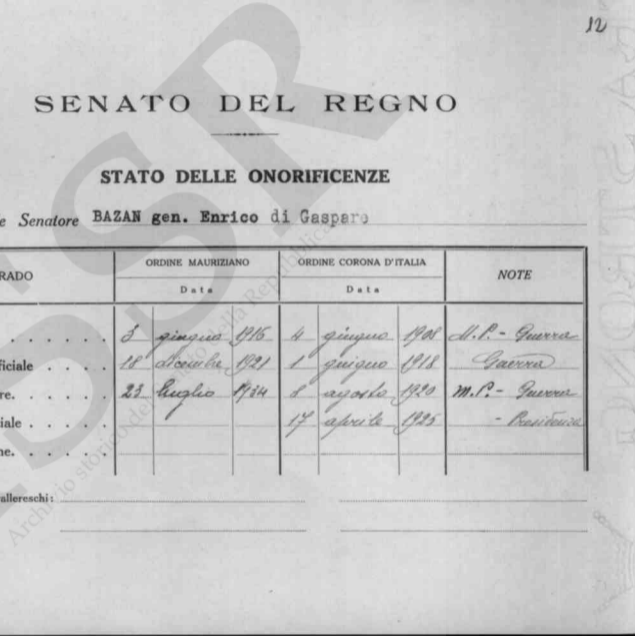 12
SENATO DEL REGNO
STATO DELLE ONORIFICENZE
e Senatore BAZAN gen. Enrico di Gaspare
RADO ORDINE MAURIZIANO ORDINE CORONA D'ITALIA NOTE
Data Data
giugno 1916 4 giugno 1908 M.P. - Guerra
ficiale 18 dicembre 1921 1 giugno 1918 Guerra
re. 23 luglio 1934 8 agosto 1920 M.P. - Guerra
iale 17 aprile 1925 - Presidenza
ne.
allereschi:
Archivio storico del Senato della Repubblica